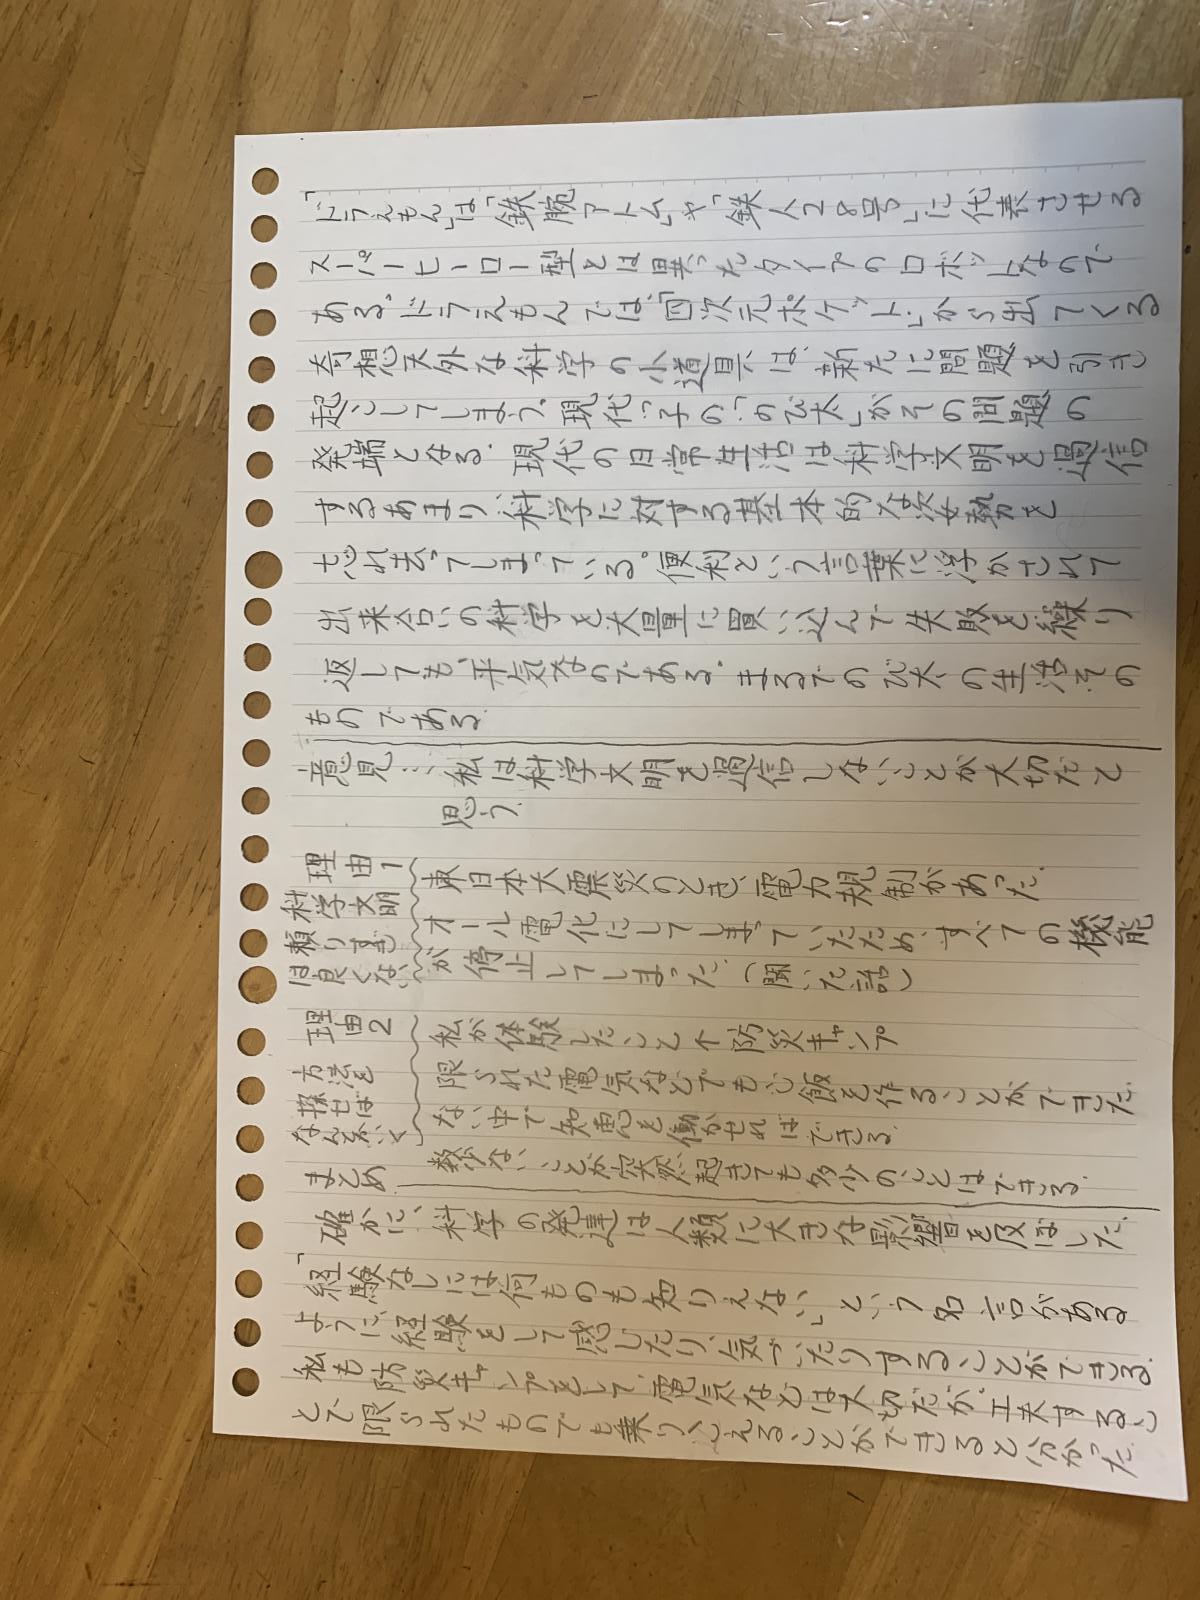 「ドラえもん」は「鉄腕アトム」や「鉄人28号」に代表させる
スーパーヒーロー型とは異ったタイプのロボットなので
ある。ドラえもんでは、「四次元ポケット」から出てくる
奇想天外な科学の小道具は、新たに問題を引き
起こしてしまう。現代っ子の「のび太」がその問題の
発端となる。現代の日常生活は科学文明を過信
するあまり、科学に対する基本的な姿勢を
忘れ去ってしまっている。便利という言葉に浮かされて
出来合いの科学を大量に買い込んで失敗を繰り
返しても、平気なのである。まるでのび太の生活その
ものである。
意見…私は科学文明を過信しないことが大切だと
思う。
理由1
科学文明
頼りすぎ
は良くない
東日本大震災のとき、電力規制があった。
オール電化にしてしまっていたため、すべての機能
が停止してしまった。(聞いた話)
理由2
方法を
探せば
なんとかいく
私が体験したこと 防災キャンプ
限られた電気などでもご飯を作ることができた。
ない中で知恵を働かせればできる。
数少ないことが突然起きても多少のことはできる。
まとめ
確かに、科学の発達は人類に大きな影響を及ぼした。
「経験なしには何ものも知りえない」という名言がある
ように、経験をして感じたり、気づいたりすることができる。
私も防災キャンプをして、電気などは大切だが、工夫するこ
とで限られたものでも乗りこえることができると分かった。